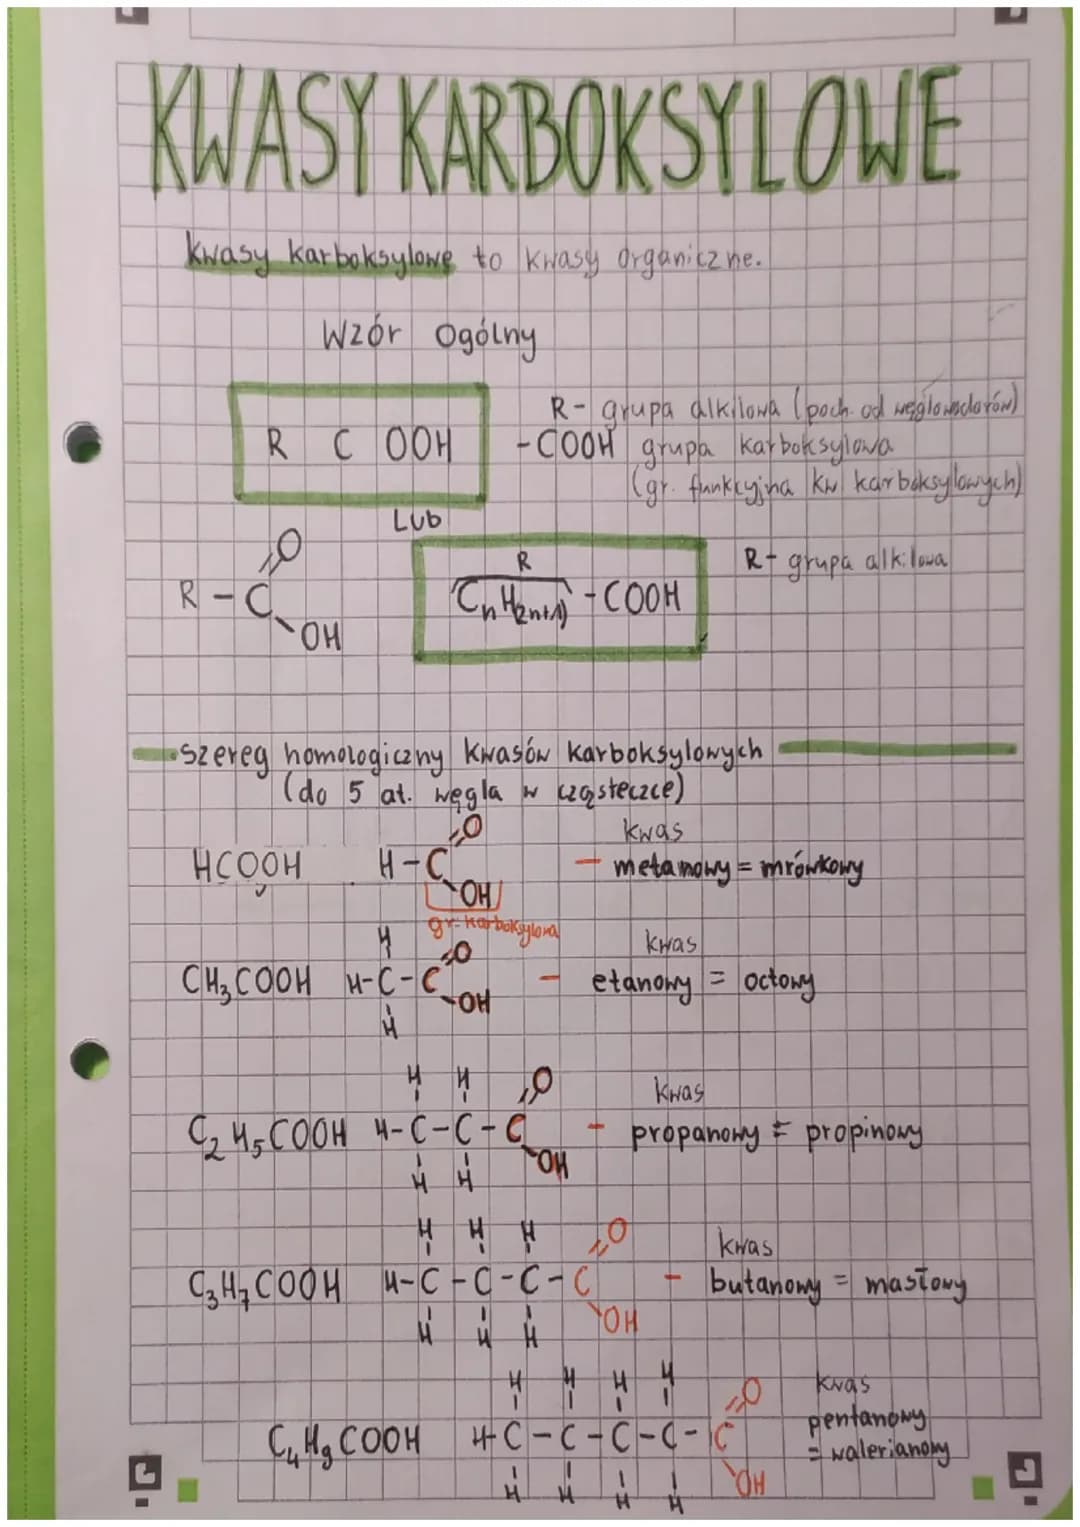 KWASY KARBOKSYLOWE
Kwasy karboksylowe to kwasy organiczne.
Wzór Ogólny
R C OOH
R - grupa alkilowa (poch. od węglowodorów)
-COOH grupa karboksylowa
(gr. funkcyjna kw karboksylowych)
Lub
R - C
O
OH
R
CnH(2n+1) - COOH
R - grupa alkilowa
szereg homologiczny kwasów karboksylowych
(do 5 at. węgla w cząsteczce)
HCOOH
H - C
O
OH
gr. karboksylowa
kwas
- metanowy = mrówkowy
CH₃COOH
H
H-C-C
H
O
OH
kwas
- etanowy = octowy
C₂H₅COOH
H H
H-C-C-C
H H
O
OH
kwas
- propanowy = propinowy
C₃H₇COOH
H H H
H-C-C-C-C
H H H
O
OH
kwas
- butanowy = masłowy
C₄H₉COOH
H H H H
H-C-C-C-C-C
H H H H
O
OH
kwas
pentanowy
= walerianowy